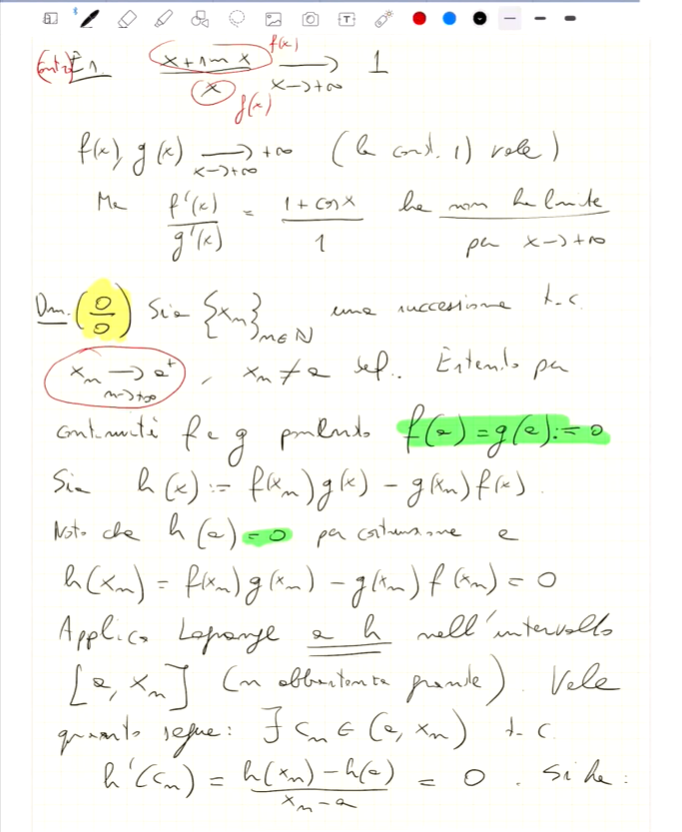 (Contro)Es. (x + sin x)/x f(x) g(x) ⟶ x→+∞ 1
f(x), g(x) ⟶ x→+∞ +∞ (la cond. 1) vale)
Ma f'(x)/g'(x) = (1 + cos x)/1 ha non ha limite
per x→+∞
Dim. (0/0) Sia {xₙ}ₙ∈ℕ una successione t.c.
xₙ ⟶ n→+∞ a⁺, xₙ ≠ a def.. Estendo per
continuità f e g ponendo f(a) = g(a) := 0
Sia h(x) := f(xₙ)g(x) - g(xₙ)f(x).
Noto che h(a) = 0 per costruzione e
h(xₙ) = f(xₙ)g(xₙ) - g(xₙ)f(xₙ) = 0
Applico Lagrange a h nell'intervallo
[a, xₙ] (n abbastanza grande). Vale
quanto segue: ∃ cₙ ∈ (a, xₙ) t.c.
h'(cₙ) = (h(xₙ) - h(a))/(xₙ - a) = 0. Si ha: